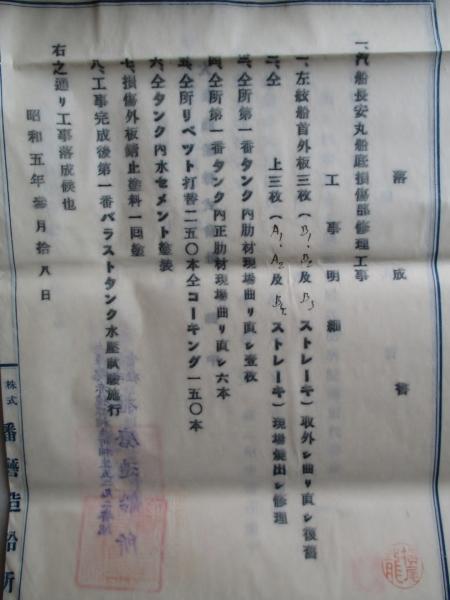 落成書
一、汽船長安丸船底損傷部修理工事
工事明細
一、左舷船首外板三枚(B1. B2 及 B3 ストレーキ)取外シ曲リ直シ復舊
二、仝 上三枚(A1. A2 及 ストレーキ)現場焼出シ修理
三、仝所第一番タンク內肋材現場曲リ直シ壹枚
四、仝所第一番タンク內正肋材現場曲リ直シ六本
五、仝所リベット打替二五〇本仝コーキング一五〇本
六、仝タンク內水セメント塗裝
七、損傷外板錆止塗料一回塗
八、工事完成後第一番バラストタンク水壓試驗施行
右之通リ工事落成候也
昭和五年 月拾八日
株式 播磨造船所
造船所